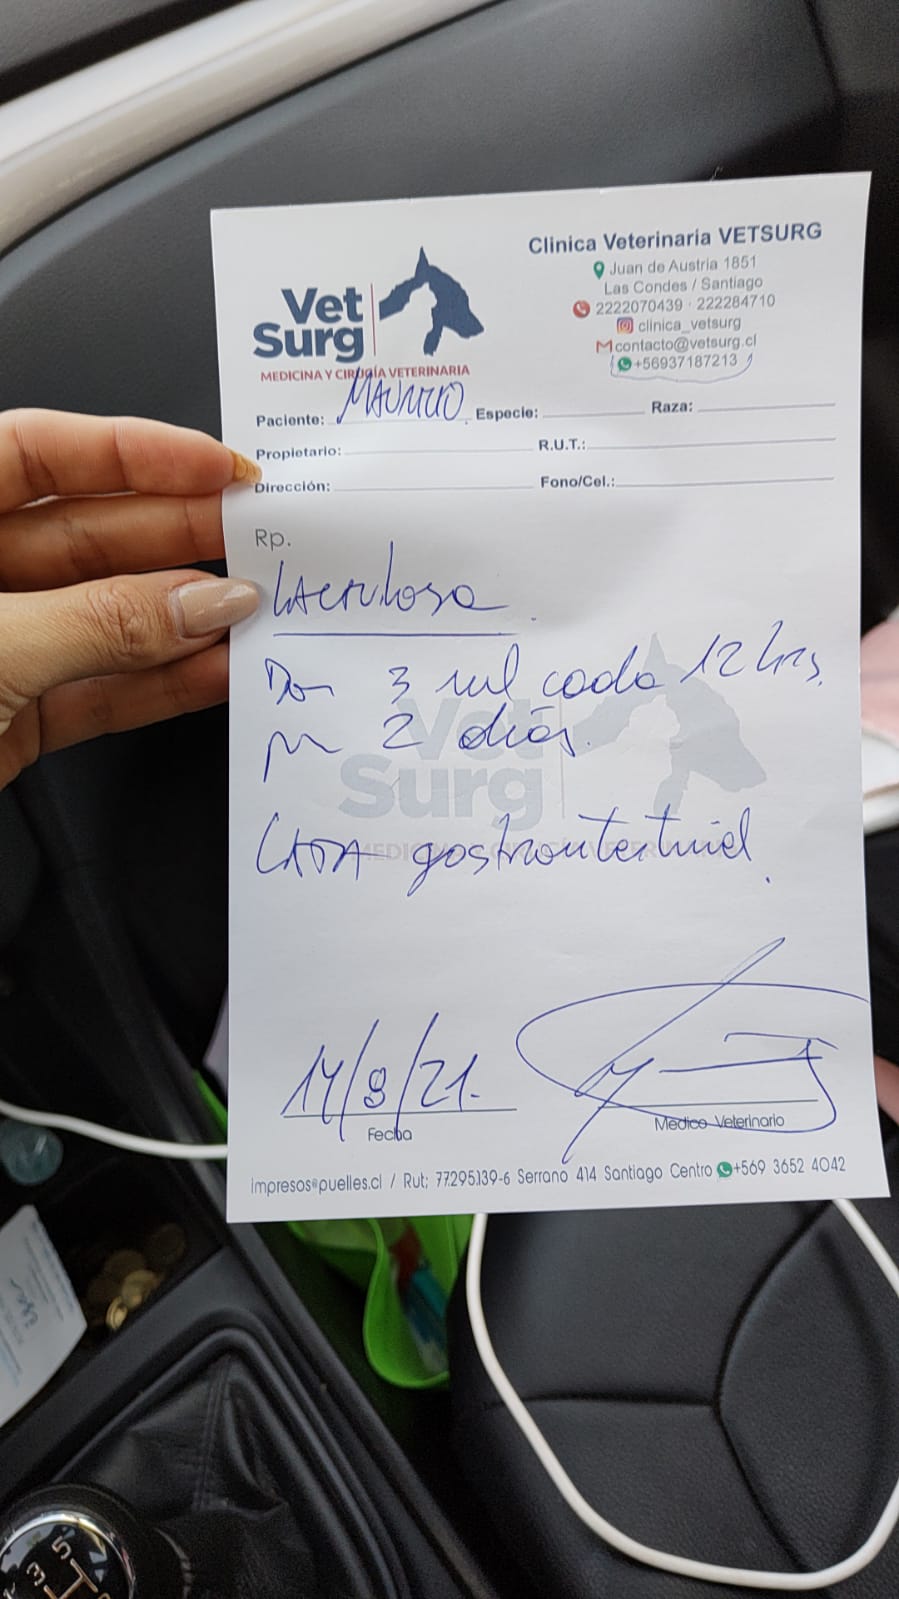 Vet
Surg
MEDICINA Y CIRUGÍA VETERINARIA
Clinica Veterinaria VETSURG
Juan de Austria 1851
Las Condes / Santiago
2222070439 · 222284710
clinica_vetsurg
contacto@vetsurg.cl
+56937187213
Paciente: MAURICIO Especie: Raza:
Propietario: R.U.T.:
Dirección: Fono/Cel.:
Rp.
Lactulosa
Dar 3 ml cada 12 hrs.
por 2 días.
Vet
Surg
LATA gastrointestinal
14/8/21.
Fecha
Medico Veterinario
impresos@puelles.cl / Rut; 77.295.139-6 Serrano 414 Santiago Centro +569 3652 4042
5
3